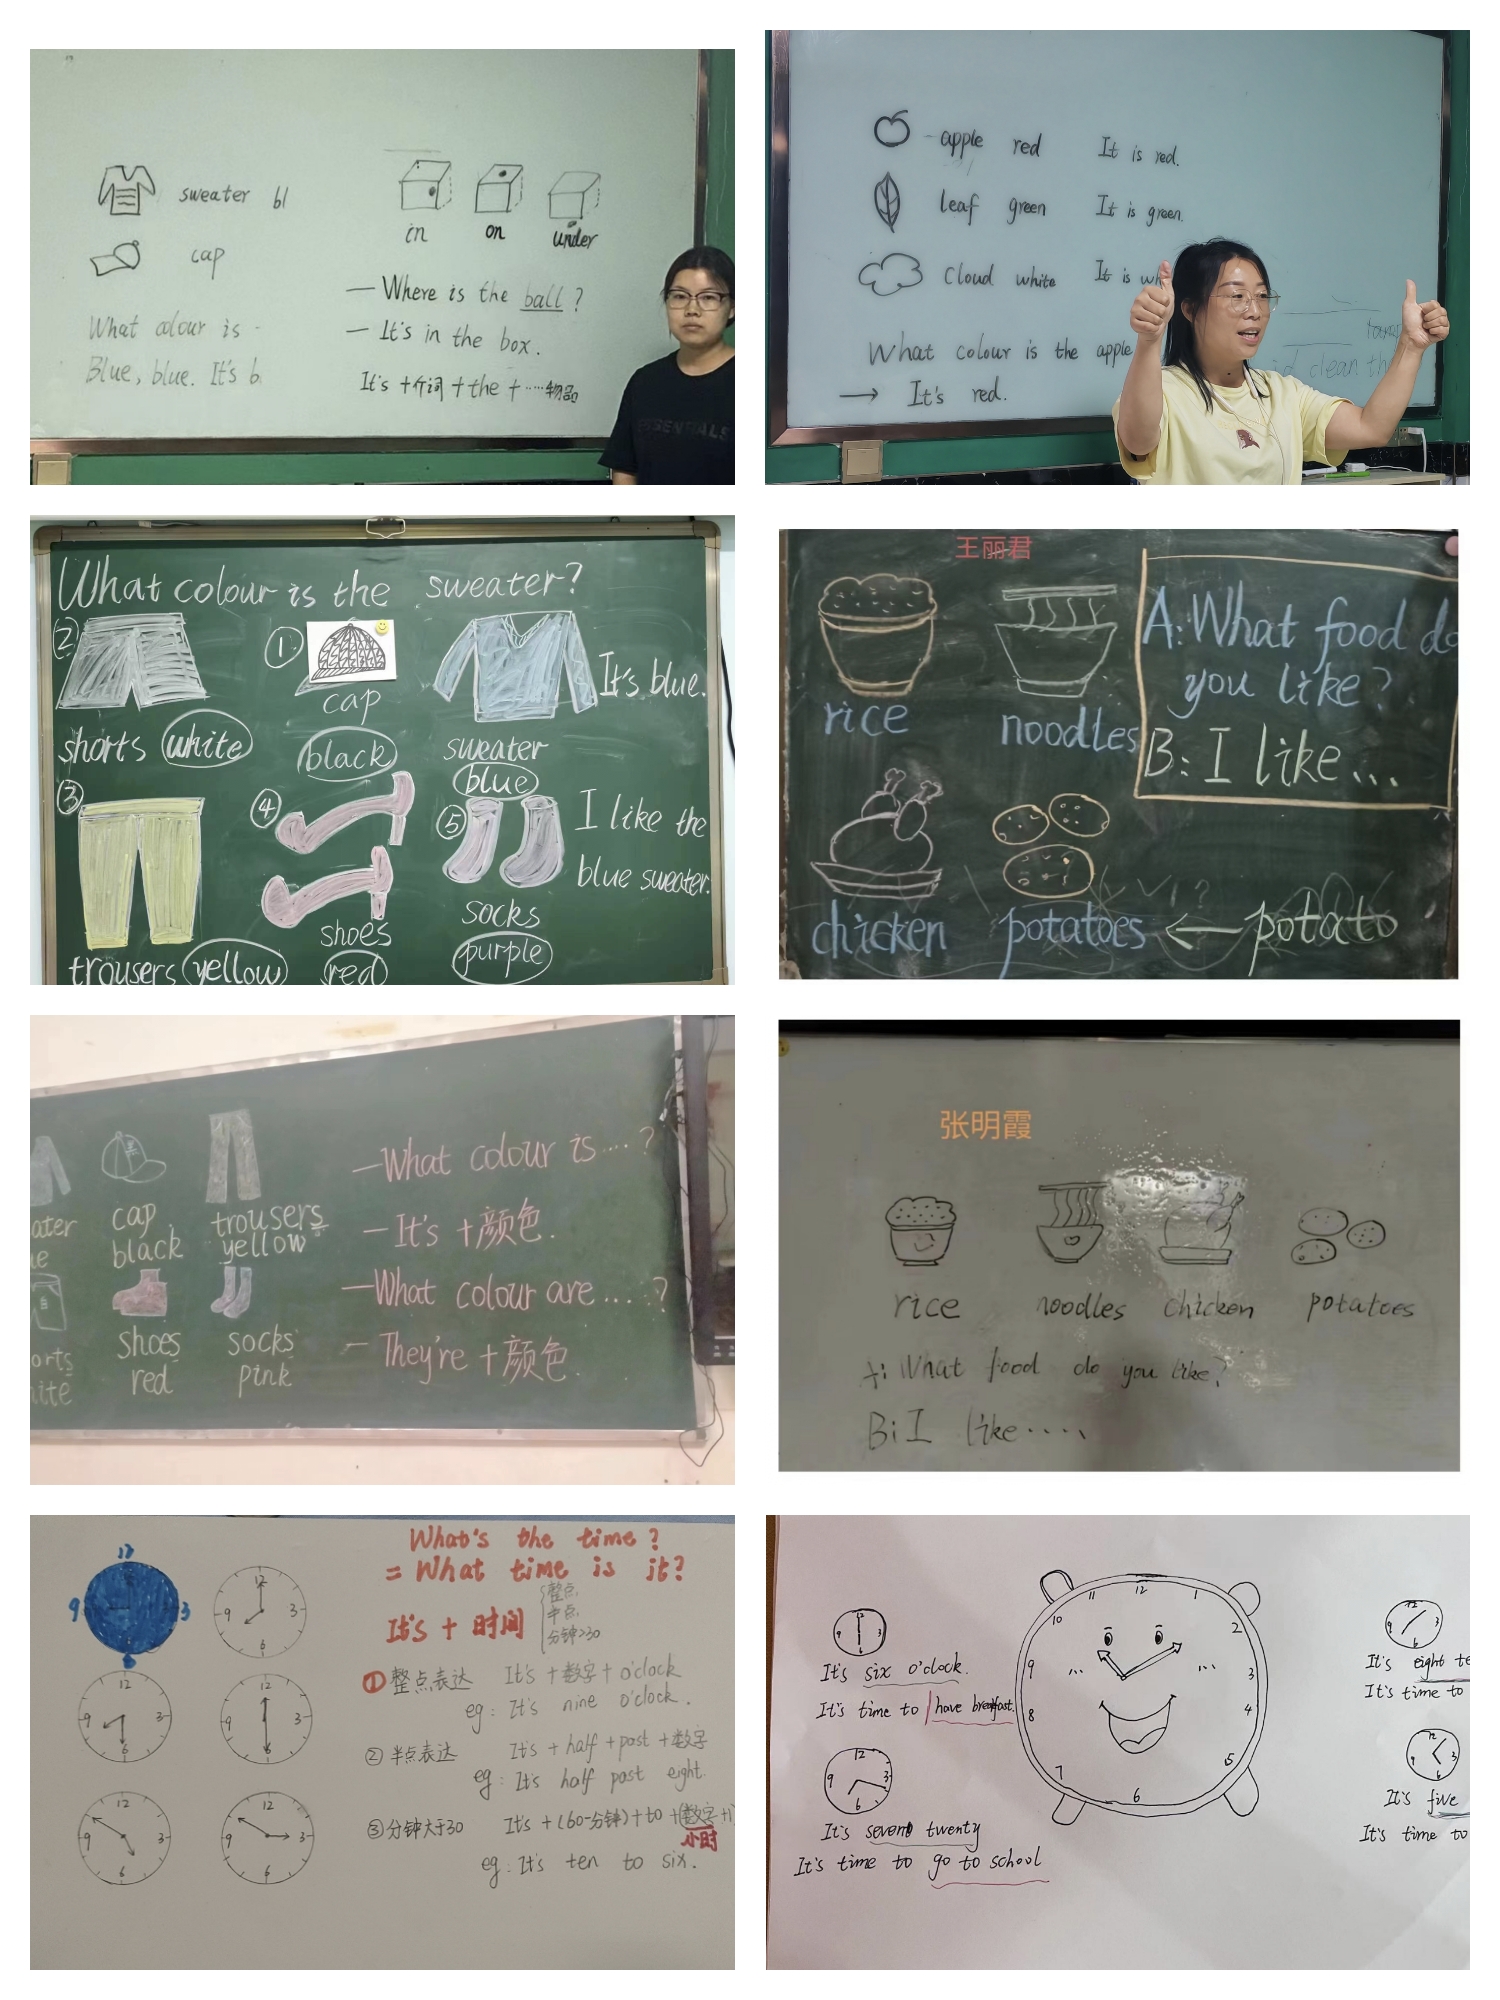 sweater bl
cap
What colour is
Blue, blue. It's b
in on under
— Where is the ball ?
— It's in the box.
It's + 介词 + the + ······物品
ESSENTIALS
apple red It is red.
leaf green It is green.
cloud white It is wh
What colour is the apple
→ It's red.
clean th
What colour is the sweater?
② ①
cap
It's blue.
shorts white black sweater
blue
③ ④ ⑤
I like the
blue sweater.
shoes socks
trousers yellow red purple
王丽君
A: What food do
you like?
rice noodles
B: I like...
chicken potatoes ← potato
ater cap trousers
ue black yellow
orts shoes socks
hite red pink
—What colour is....?
—It's + 颜色.
—What colour are....?
—They're + 颜色.
张明霞
rice noodles chicken potatoes
A: What food do you like?
B: I like.....
What's the time?
= What time is it?
It's + 时间
整点
半点
分钟>30
① 整点表达 It's + 数字 + o'clock
eg: It's nine o'clock.
② 半点表达 It's + half + past + 数字
eg: It's half past eight.
③ 分钟大于30 It's + (60-分钟) + to + (数字+1
小时
eg: It's ten to six.
12 3 6 9
12 3 6 9
12 3 6 9
12 3 6 9
12 3 6 9
12 3 6 9
12 1 2 3 4 5 6 7 8 9 10 11
It's six o'clock.
It's time to have breakfast.
It's seven twenty
It's time to go to school
It's eight te
It's time to
It's five
It's time to